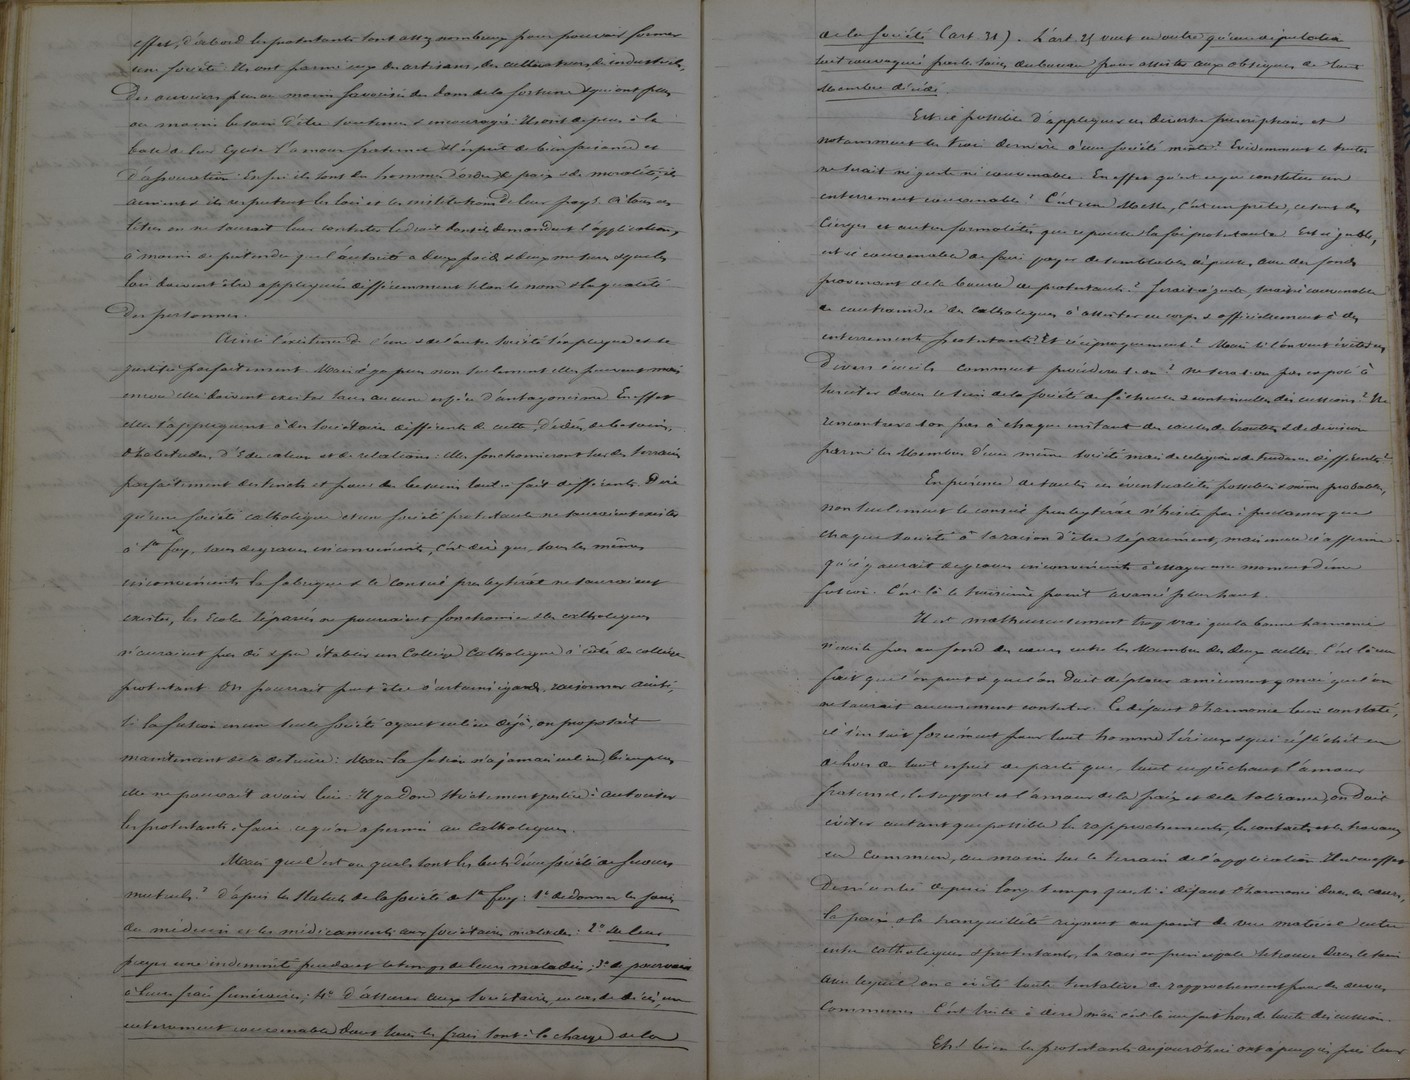 effet, d'abord les protestants sont assez nombreux pour pouvoir former
une société. Ils ont parmi eux des artisans, des cultivateurs, des industriels,
Des ouvriers plus ou moins favorisés des dons de la fortune & qui ont plus
ou moins besoin d'être soutenus & encouragés. Ils ont de plus à la
base de leur Eglise l'amour fraternel & l'esprit de bienfaisance et
D'association. Enfin ils sont des hommes d'ordre, de paix & de moralité; ils
aiment & ils respectent les lois et les institutions de leur pays. A tous ces
titres on ne saurait leur contester le droit dont ils demandent l'application,
à moins de prétendre que l'autorité a deux poids & deux mesures & que les
lois doivent être appliquées différemment selon le nom & la qualité
Des personnes.
Ainsi l'existence de l'une & de l'autre Société s'explique et se
justifie parfaitement. Mais il y a plus non seulement elles peuvent mais
encore elles doivent exister sans aucune espèce d'antagonisme. En effet
elles s'appliquent à des sociétaires différents de culte, d'idées, de besoins,
d'habitudes, d'Education et de relations: elles fonctionneront sur des terrains
parfaitement distincts et pour des besoins tout à fait différents. Dire
qu'une Société catholique et une Société protestante ne sauraient exister
à Ste foy, sans de graves inconvénients, c'est dire que, sous les mêmes
inconvénients la fabrique & le Conseil presbytéral ne sauraient
exister, les Ecoles séparées ne pourraient fonctionner & les catholiques
n'auraient pas dû & pu établir un Collège Catholique à côté du collège
protestant. On pourrait peut être à certains égards, raisonner ainsi,
si la fusion en une seule Société ayant eu lieu déjà, on proposait
maintenant de la détruire: Mais la fusion n'a jamais eu lieu, bien plus
elle ne pouvait avoir lieu. Il y a donc strictement justice à autoriser
les protestants à faire ce qu'on a permis aux Catholiques.
Mais quel est ou quels sont les buts d'une Société de Secours
mutuels? d'après les Statuts de la Société de Ste foy: 1° de donner les soins
du médecin et les médicaments aux sociétaires malades: 2° de leur
payer une indemnité pendant le temps de leurs maladies; 3° de pourvoir
à leurs frais funéraires; 4° d'assurer aux Sociétaires, en cas de décès, un
enterrement convenable dont tous les frais sont à la charge de la
de la Société (art. 31). L'art. 25 veut en outre qu'une députation
soit convoquée par les soins du bureau pour assister aux obsèques de tout
Membre décédé.
Est-il possible d'appliquer ces diverses prescriptions et
notamment les trois dernières à une société mixte? Evidemment le tenter
ne serait ni juste ni convenable. En effet qu'est-ce qui constitue un
enterrement convenable? C'est une Messe, c'est un prêtre, ce sont des
Cierges et autres formalités que repousse la foi protestante. Est-il juste,
est-il convenable de faire payer de semblables dépenses avec des fonds
provenant de la bourse de protestants? Serait-il juste, serait-il convenable
de contraindre des catholiques à assister en corps & officiellement à des
enterrements protestants? Et réciproquement? Mais si l'on veut éviter ces
Divers écueils comment procédera-t-on? ne sera-t-on pas exposé à
susciter dans le sein de la Société de fâcheuses & continuelles discussions? Ne
rencontrera-t-on pas à chaque instant des causes de troubles & de division
parmi les Membres d'une même Société mais de religion & de tendances différentes?
En présence de toutes ces éventualités possibles & même probables,
non seulement le conseil presbytéral n'hésite pas à proclamer que
chaque Société a sa raison d'être séparément, mais encore à affirmer
qu'il y aurait de graves inconvénients à essayer un moment d'une
fusion. C'est là le troisième point avancé plus haut.
Il est malheureusement trop vrai que la bonne harmonie
n'existe pas au fond des cœurs entre les Membres des deux cultes. C'est là un
fait que l'on peut & que l'on Doit déplorer amèrement, mais que l'on
ne saurait aucunement contester. Ce défaut d'harmonie bien constaté,
il s'en suit forcément pour tout homme sérieux & qui réfléchit en
dehors de tout esprit de parti que, tout en prêchant l'amour
fraternel, le support et l'amour de la paix et de la tolérance, on Doit
éviter autant que possible les rapprochements, les contacts et les travaux
en commun, au moins sur le terrain de l'application. Il est en effet
Démontré depuis long-temps que si à défaut d'harmonie dans les cœurs,
la paix & la tranquillité règnent au point de vue matériel entre
entre catholiques & protestants, la raison principale se trouve dans le soin
avec lequel on a évité toute tentative de rapprochement pour des œuvres
Communes. C'est triste à dire mais c'est là un fait hors de toute discussion.
Eh! bien les protestants aujourd'hui ont à peu près pris leur